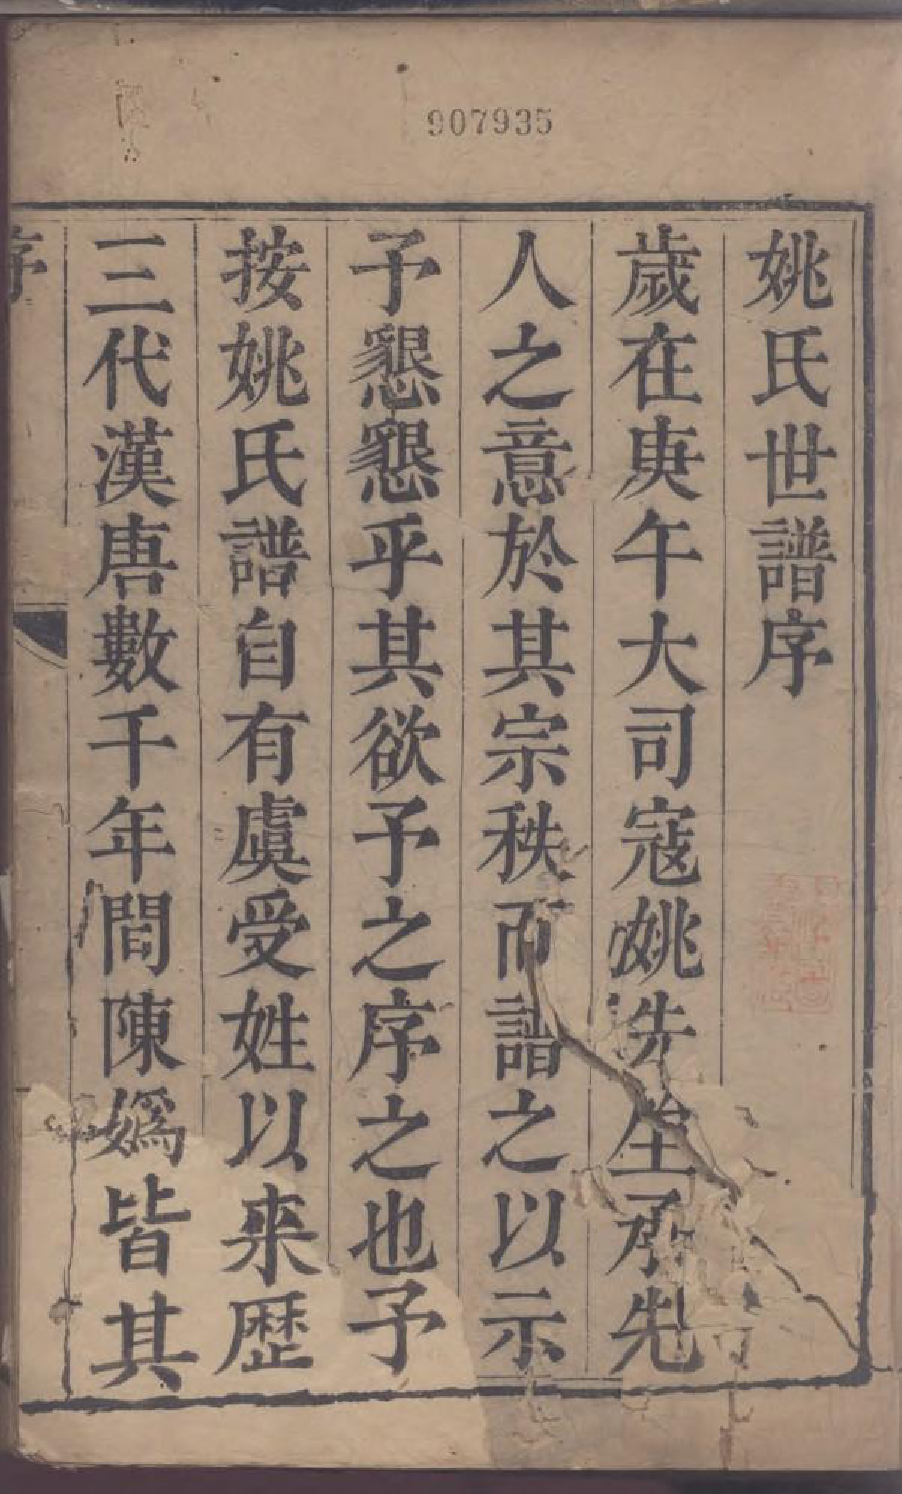 907935
姚氏世譜序
歲在庚午大司寇姚先生承先
人之意於其宗秩而譜之以示
予懇懇乎其欲予之序之也予
按姚氏譜自有虞受姓以来歴
三代漢唐數千年間陳嬀皆其
序